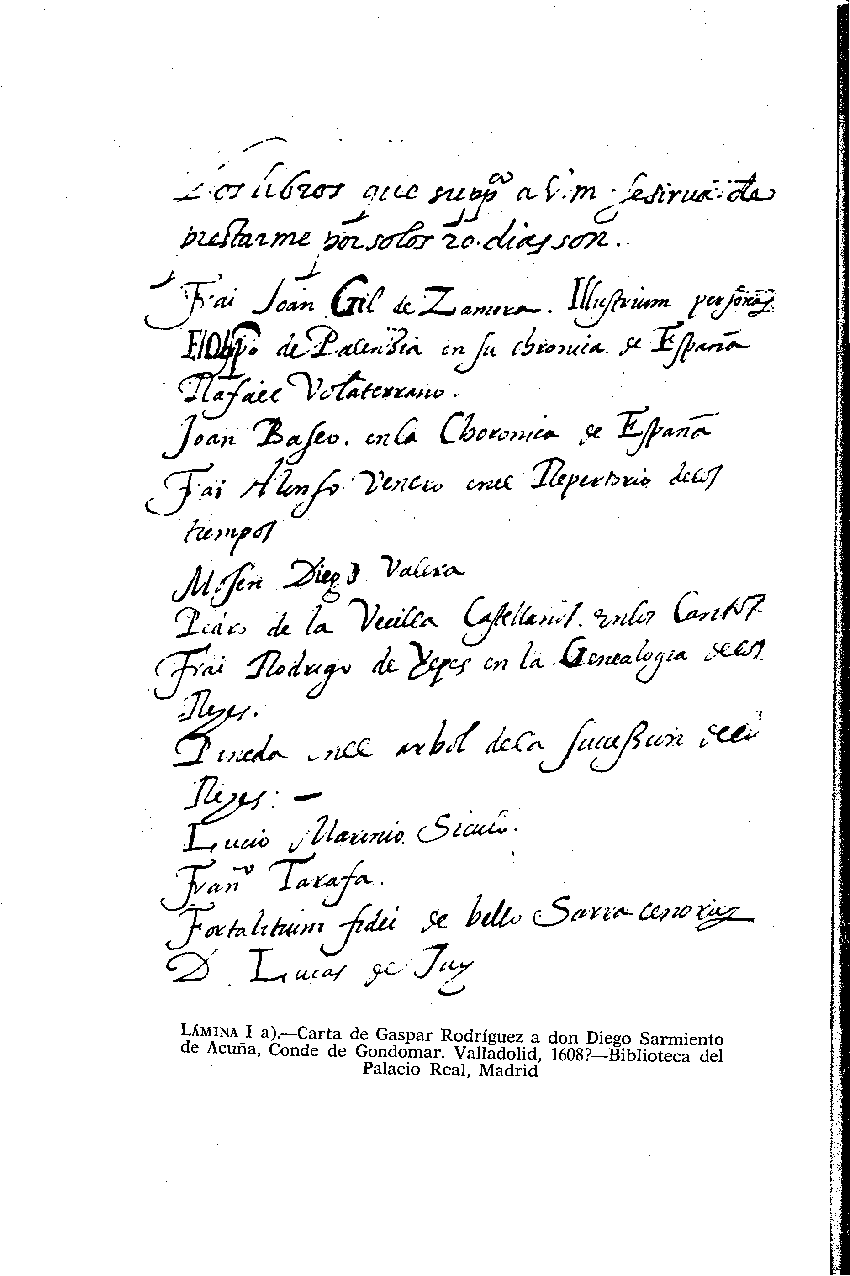 Los libros que supp.co a V.m. se sirua de
prestarme por solos 20. dias son.
Frai Joan Gil de Zamora. Illustrium personas
El Obpo de Palenzia en su chronica de España
Rafael Volaterrano.
Joan Baseo. en la Choronica de España
Frai Alonso Venero en el Repertorio de los
tiempos
Mosen Diego Valera
Pedro de la Vecilla Castellanos. en los Cantos
Frai Rodrigo de Yepes en la Genealogia de los
Reyes.
Pineda en el arbol de la sucession de los
Reyes: —
Lucio Marinio Siculo.
Franco Tarafa.
Fortalitium fidei de bello Sarracenorum
D. Lucas de Tuy
LÁMINA I a).—Carta de Gaspar Rodríguez a don Diego Sarmiento
de Acuña, Conde de Gondomar. Valladolid, 1608?—Biblioteca del
Palacio Real, Madrid